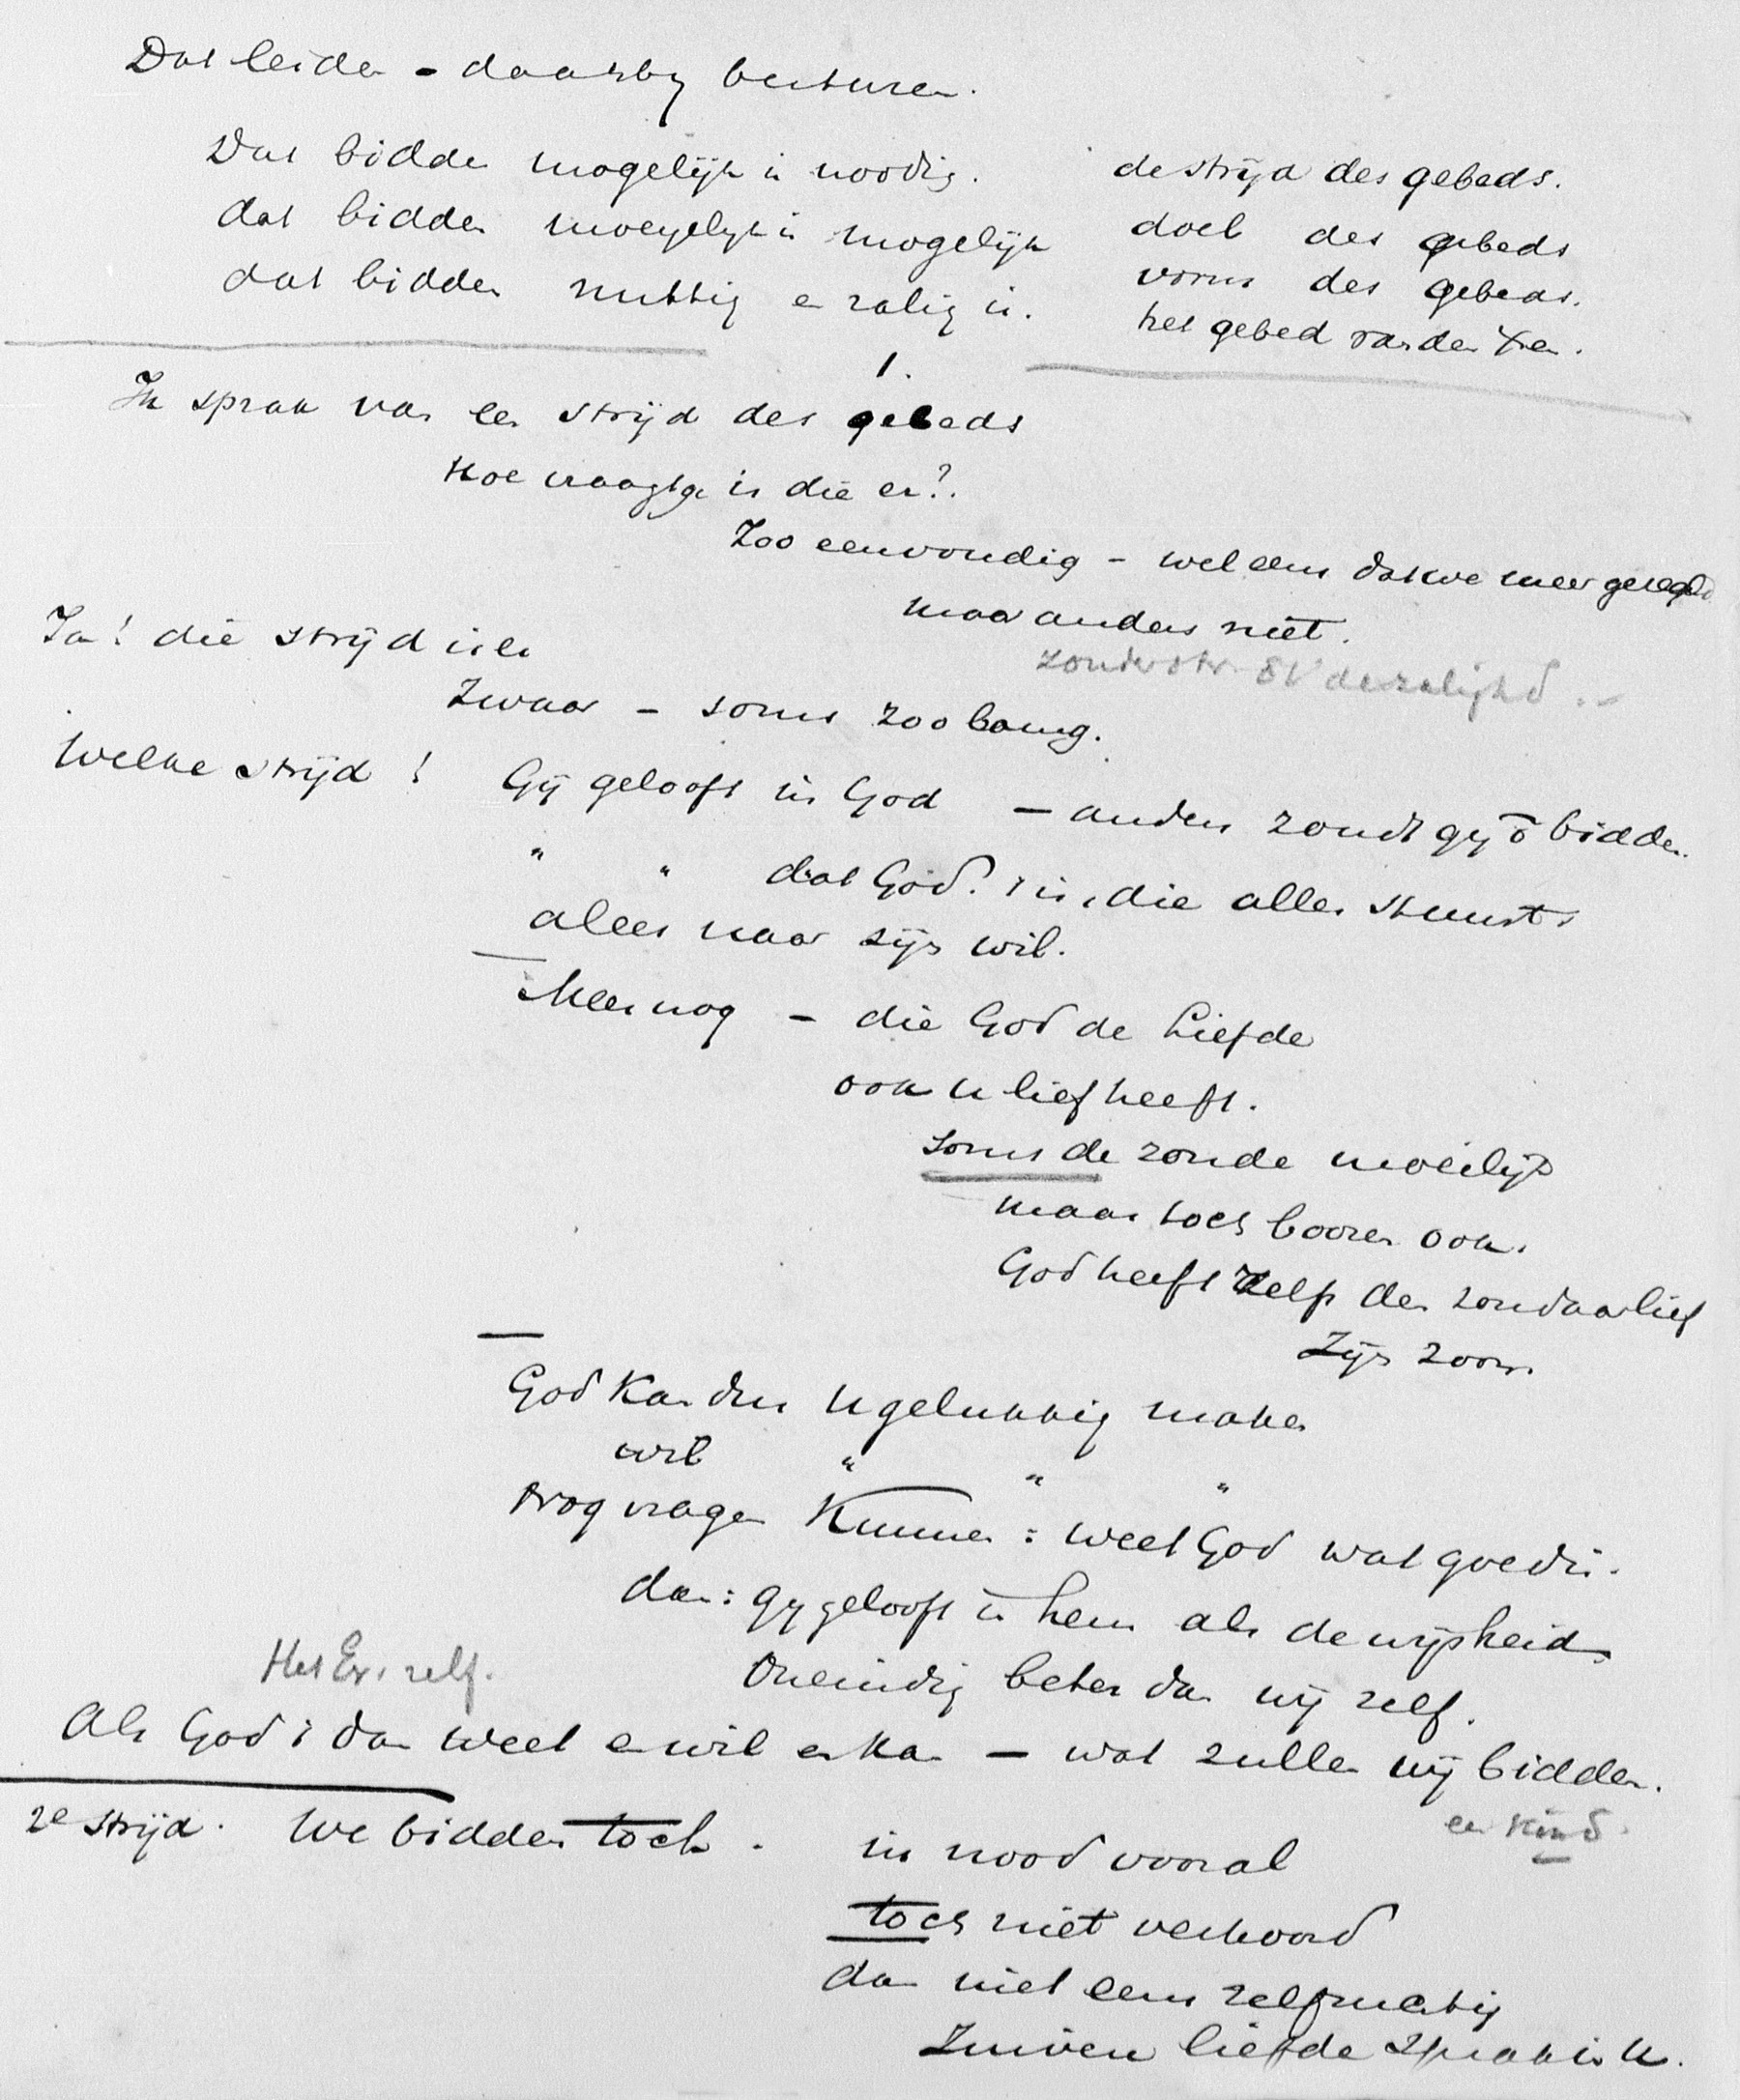 Dat leiden - daarby besturen.
Dat bidden mogelijk is noodig.
dat bidden moeyelyk is mogelijk
dat bidden nuttig en zalig is.
de strijd des gebeds.
doel des gebeds
vorm des gebeds.
het gebed van den
1.
Ik sprak van een strijd des gebeds
Hoe vraagt ge is die er?.
Zoo eenvoudig - wel eens dat we meer
maar anders niet.
zonder str. de zaligh d. -
Ja! die strijd is er
Zwaar - soms zoo bang.
Welke strijd!
Gij gelooft in God - anders zoudt gij bidden.
" " dat God is, die alles stuurt
alles naar zijn wil.
Meer nog - die God de Liefde
ook u lief heeft.
soms de zonde moeilijk
maar toch boozen ook.
God heeft zelfs den zondaar lief
Zijn zoon
God kan dus u gelukkig maken
wil " " "
Nog vragen kunnen: weet God wat goed is.
dan: gy gelooft in hem als de wijsheid
Oneindig beter dan wij zelf.
Het Ev. zelf.
Als God 't dan weet en wil en kan - wat zullen wij bidden.
een kind.
2e strijd. We bidden toch.
in nood vooral
toch niet verhoord
dan niet eens zelfzuchtig
Zuivere liefde sprak in u.